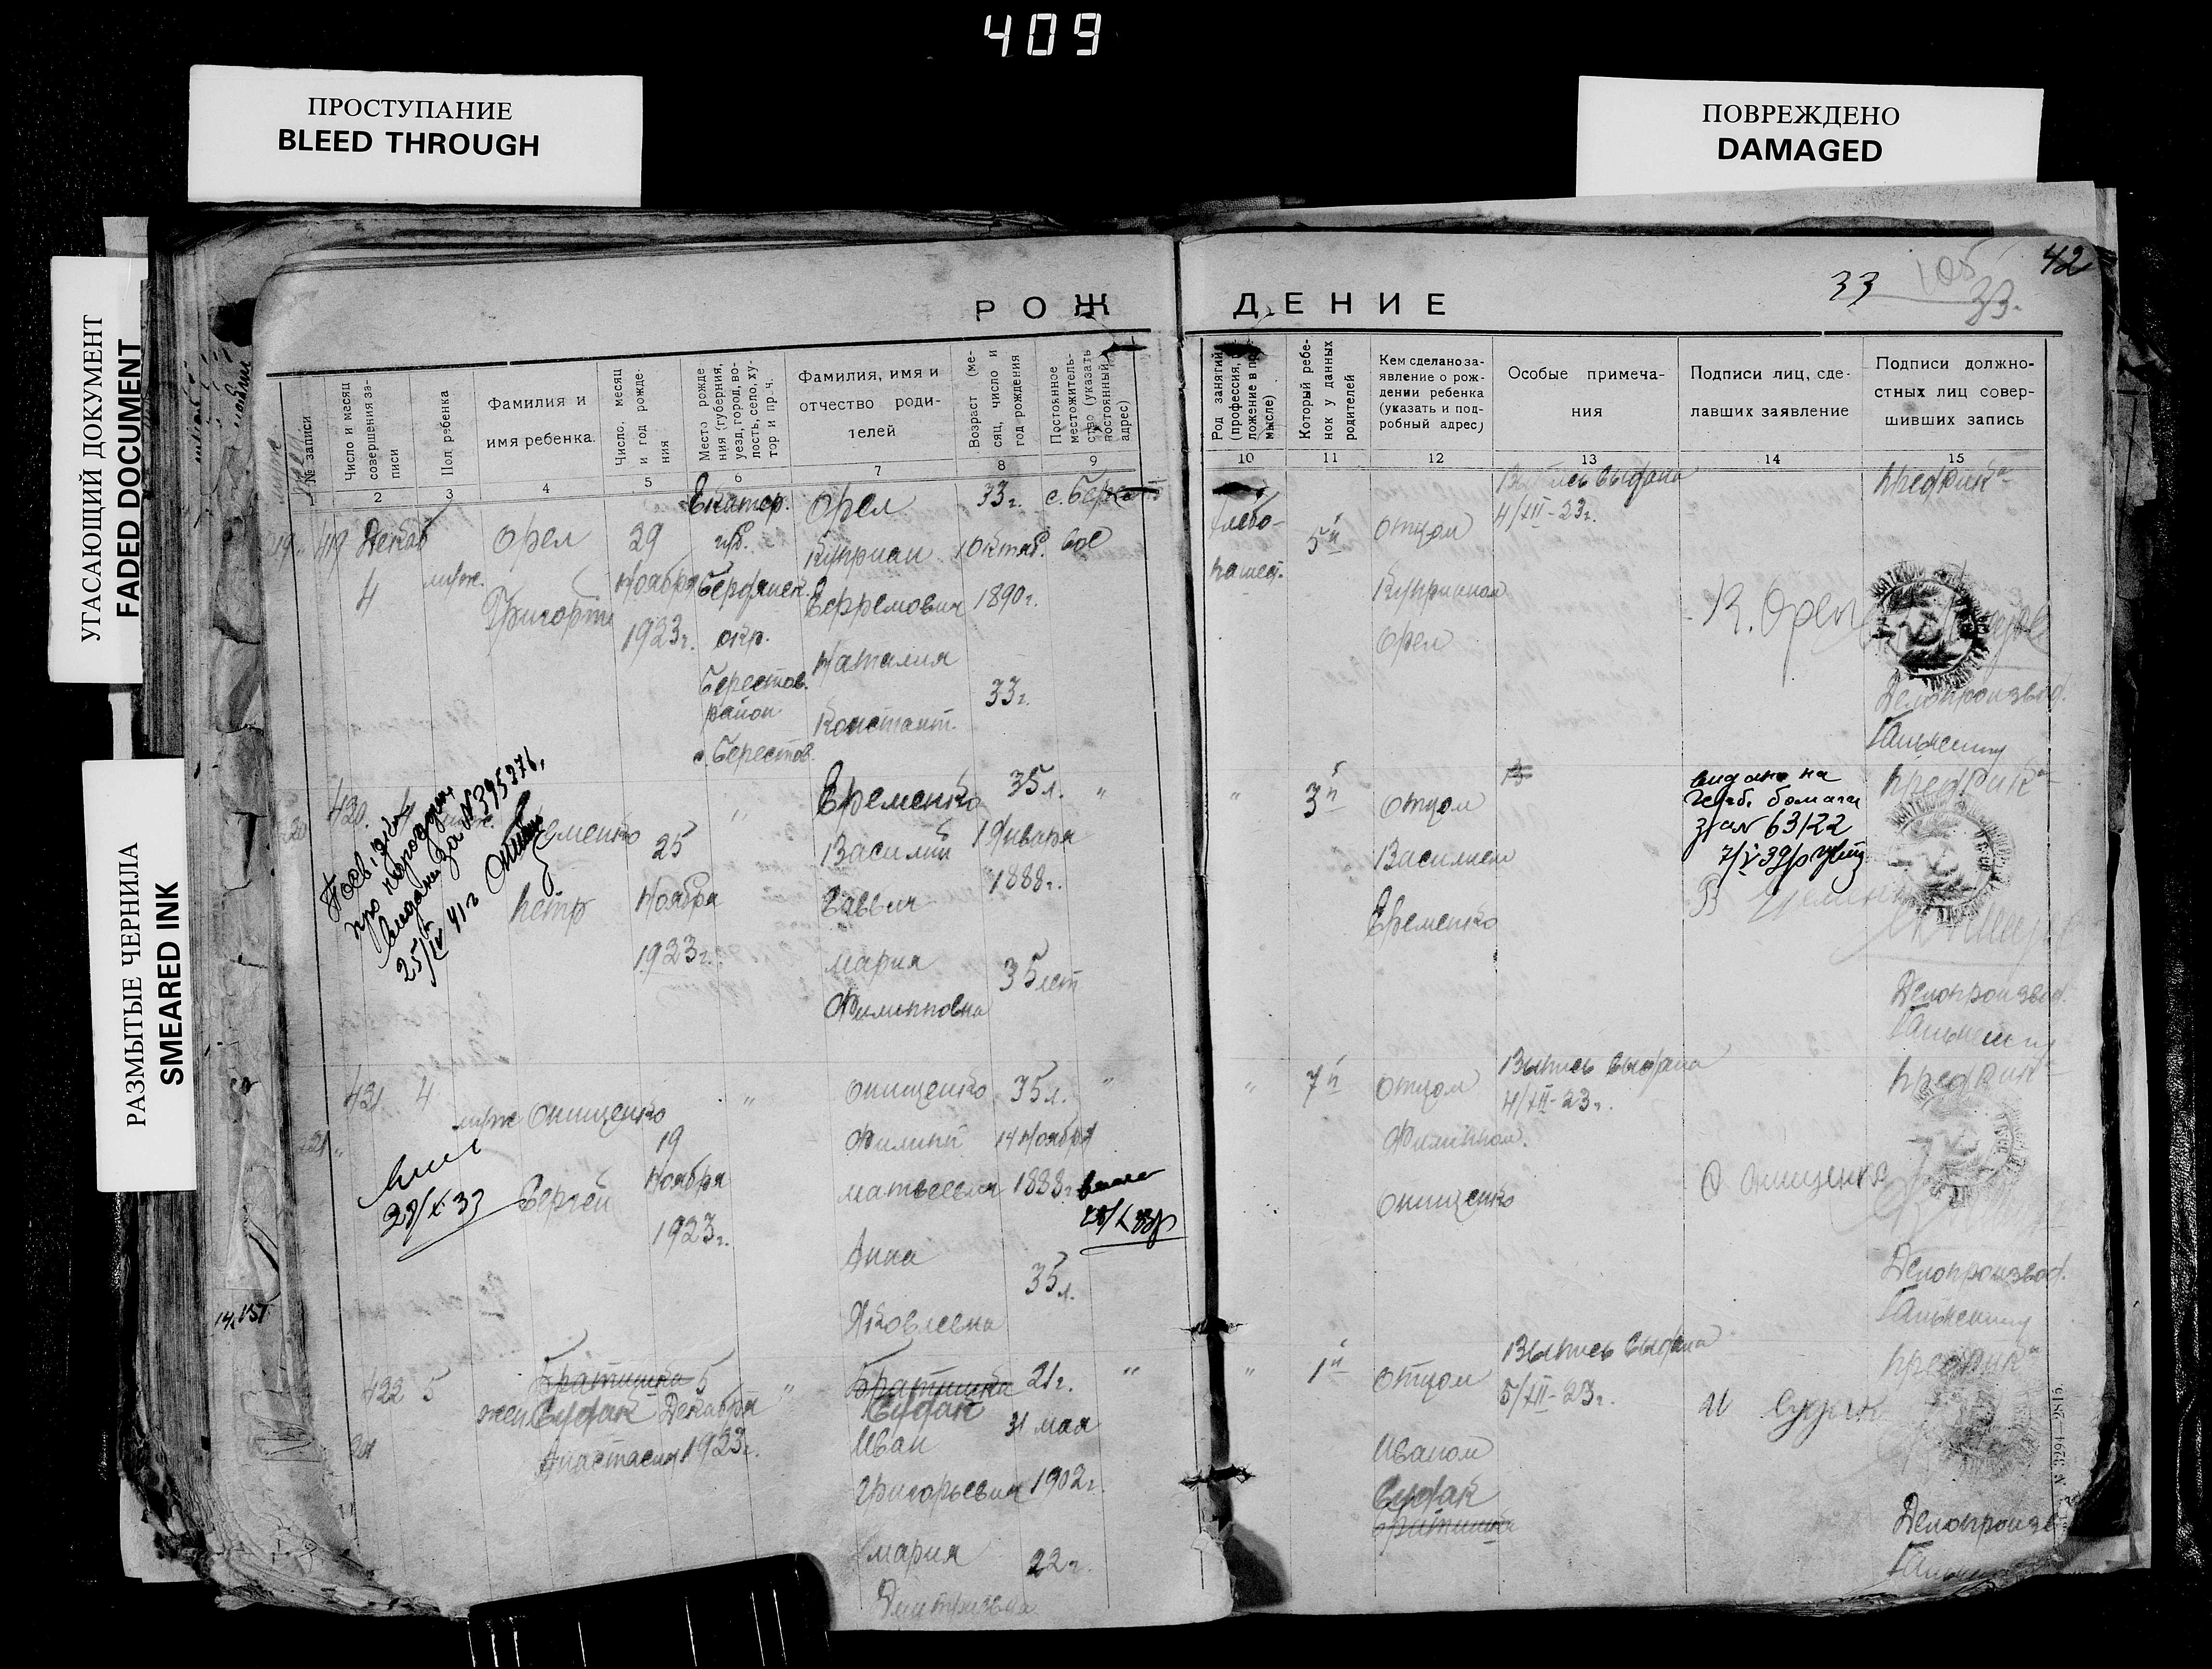 409
ПРОСТУПАНИЕ
BLEED THROUGH
ПОВРЕЖДЕНО
DAMAGED
УГАСАЮЩИЙ ДОКУМЕНТ
FADED DOCUMENT
РАЗМЫТЫЕ ЧЕРНИЛА
SMEARED INK
42
33
105
33.
РОЖДЕНИЕ
№ записи
Число и месяц
совершения за-
писи
Пол ребенка
Фамилия и
имя ребенка.
Число, месяц
и год рожде-
ния
Место рожде
ния (губерния,
уезд, город, во-
лость, село, ху-
тор и пр. ч.
Фамилия, имя и
отчество роди-
телей
Возраст (ме-
сяц, число и
год рождения
Постоянное
местожитель-
ство (указать
постоянный
адрес)
Род занятий
(профессия,
ложение в про
мысле)
Который ребе-
нок у данных
родителей
Кем сделано за-
явление о рож-
дении ребенка
(указать и под-
робный адрес)
Особые примеча-
ния
Подписи лиц, сде-
лавших заявление
Подписи должно-
стных лиц совер-
шивших запись
1 2 3 4 5 6 7 8 9 10 11 12 13 14 15
419 Декаб
4
муж.
Орел
Григорий
29
Ноября
1923г.
Екатер.
губ.
Бердянск.
окр.
Берестов.
район
с. Берестов.
Орел
Куприан
Ефремович
Наталия
Констант.
33г.
1 Октяб.
1890г.
33г.
с. Берес
вое
Хлебо-
пашец.
5й
Отцом
Куприяном
Орел
Выпись выдана
4/XII-23г.
К. Орел
Предрик
Делопроизвод.
420. 4
Посвідку
про народження
видано за №395276,
25/IV 41г
Еременко
Петр
25
Ноября
1923г.
"
Еременко
Василий
Саввич
Мария
Филипповна
35л.
1 Января
1888г.
35 лет
"
"
3й
Отцом
Василием
Еременко
видано на
герб. бомаги
за № 63/22
7/V 39р
Предрик
Делопроизвод.
421 4
муж
Онищенко
Сергей
28/X 33
19
Ноября
1923г.
"
Онищенко
Филипп
Матвеевич
Анна
Яковлевна
35л.
14 Ноября
1888г.
35л.
"
"
7й
Отцом
Филиппом.
Онищенко
Выпись выдана
4/XII-23г.
Ф Онищенко
Предрик
Делопроизвод.
422 5
жен
Братишка
Судак
Анастасия
5
Декабря
1923г.
"
Братишка
Судак
Иван
Григорьевич
Мария
Дмитриевна
21г.
31 мая
1902г.
22г.
"
"
1й
Отцом
Иваном
Судак
Братишка
Выпись выдана
5/XII-23г.
И Судак
Предрик
Делопроизв
№ 3294—2815.